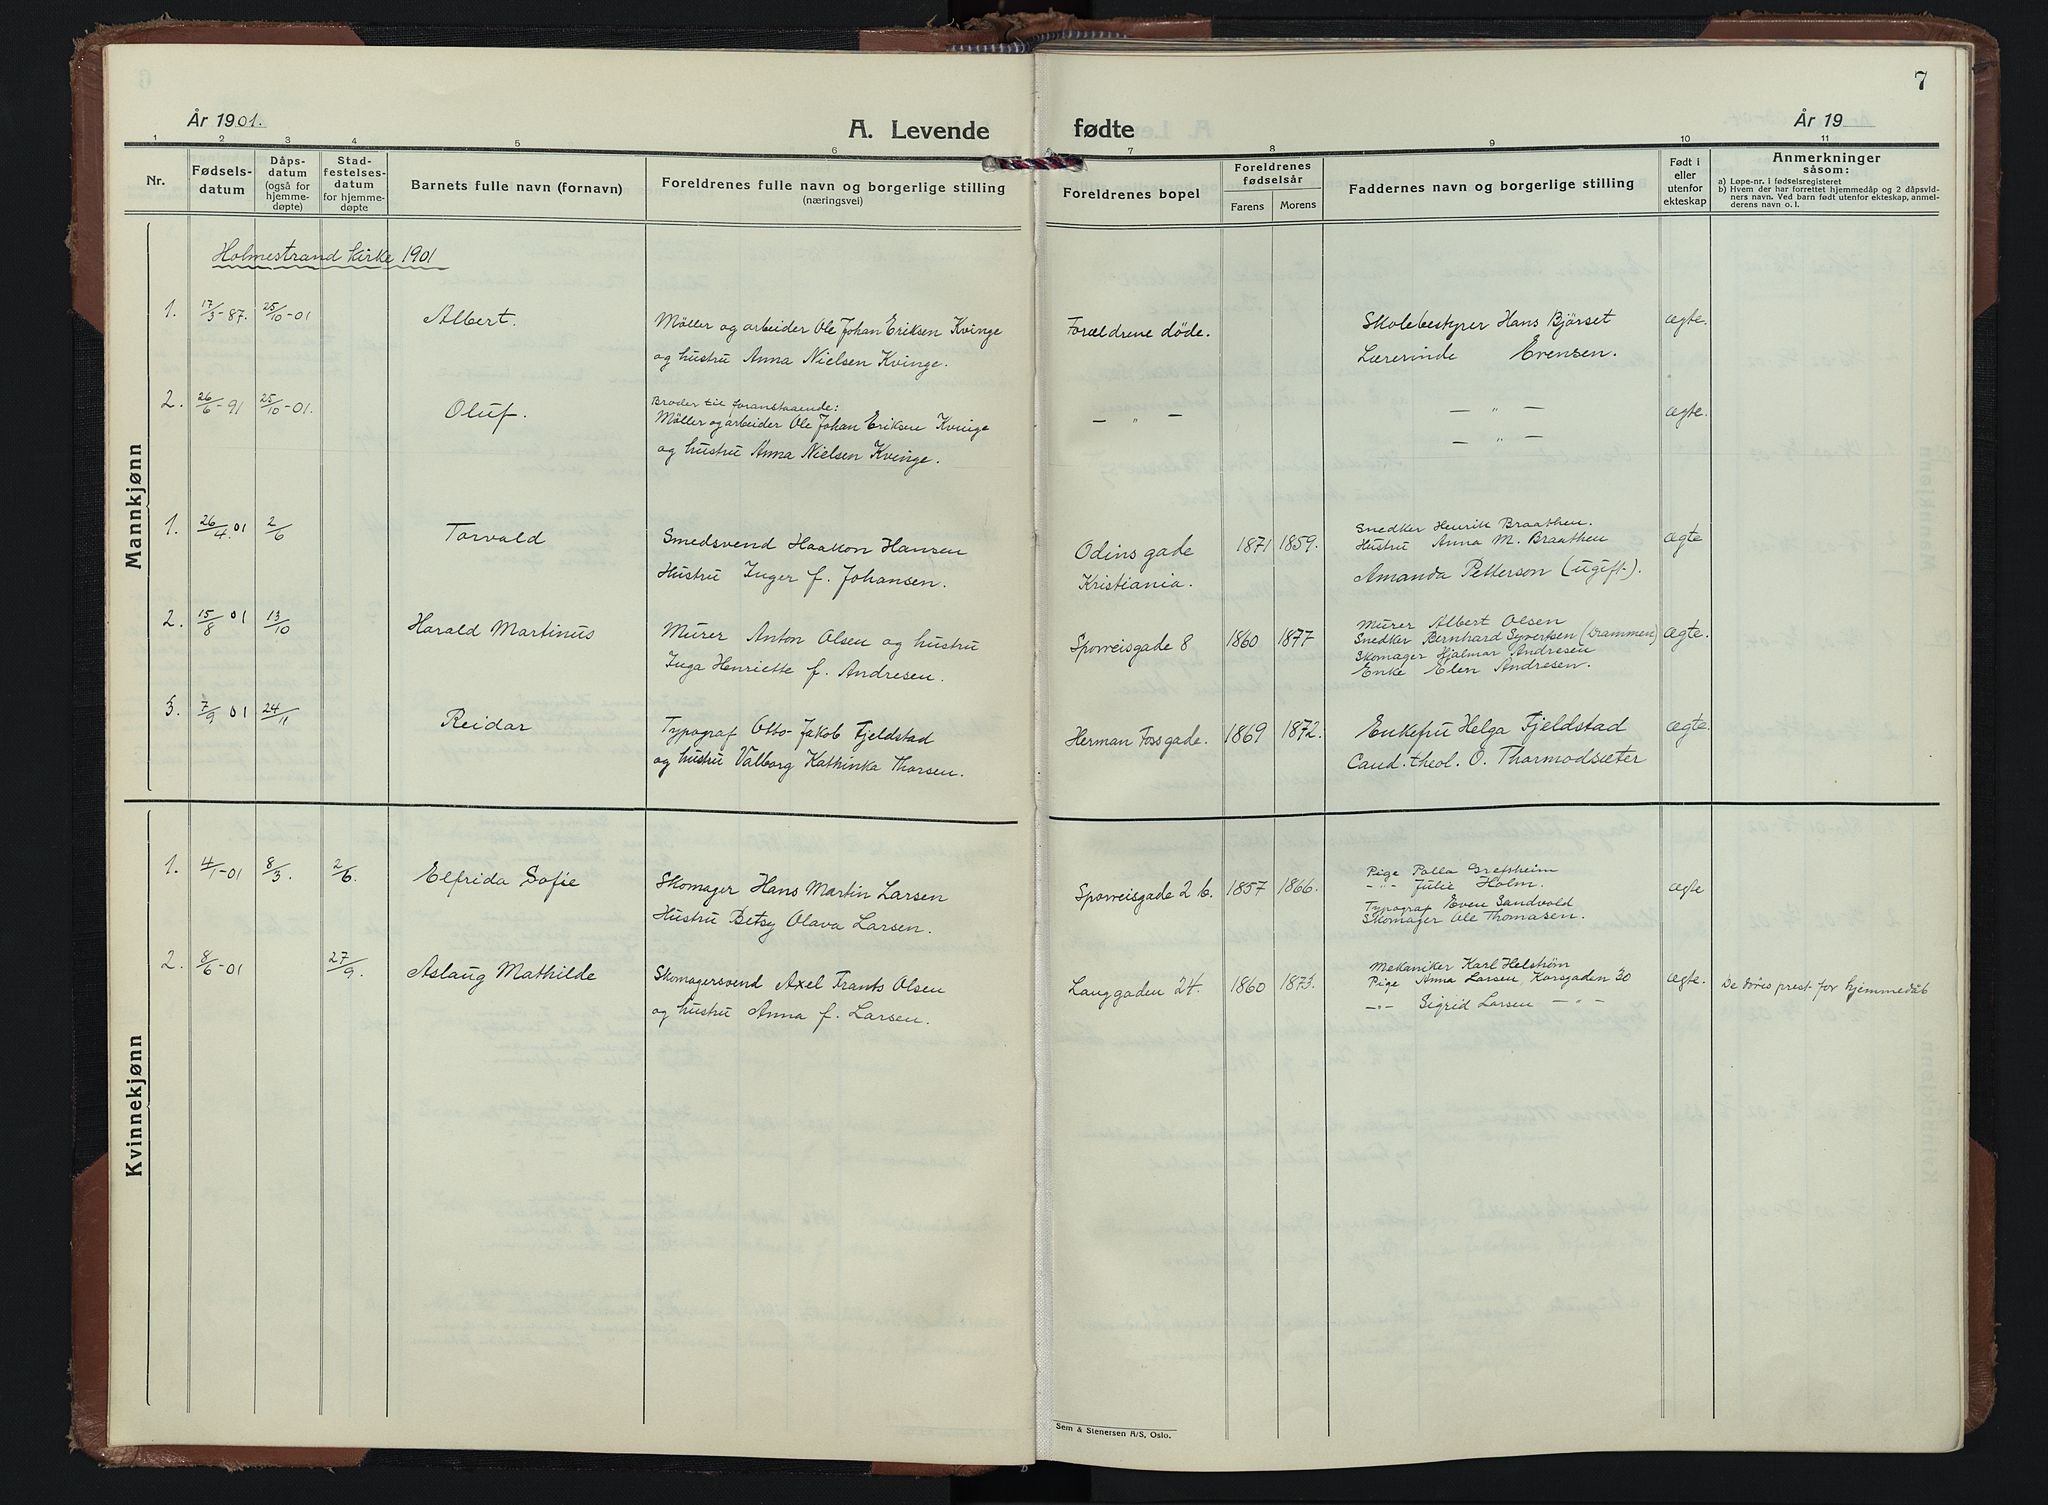 7
År 1901.
A. Levende fødte
År 19
1 2 3 4 5 6 7 8 9 10 11
Nr.
Fødsels-
datum
Dåps-
datum
(også for
hjemme-
døpte)
Stad-
festelses-
datum
for hjemme-
døpte
Barnets fulle navn (fornavn)
Foreldrenes fulle navn og borgerlige stilling
(næringsvei)
Foreldrenes bopel
Foreldrenes
fødselsår
Farens
Morens
Faddernes navn og borgerlige stilling
Født i
eller
utenfor
ekteskap
Anmerkninger
såsom:
a) Løpe-nr. i fødselsregisteret
b) Hvem der har forrettet hjemmedåp og 2 dåpsvid-
ners navn. Ved barn født utenfor ekteskap, anmel-
derens navn o. l.
Mannkjønn
Holmestrand kirke 1901
1. 17/3-87. 25/10-01 Albert. Møller og arbeider Ole Johan Eriksen Kvinge Forældrene døde. Skolebestyrer Hans Bjørset ægte.
og hustru Anna Nielsen Kvinge. Lærerinde Evensen.
2. 26/6-91 25/10-01. Oluf. Broder til foranstaaende:
Møller og arbeider Ole Johan Eriksen Kvinge — " — — " — ægte.
og hustru Anna Nielsen Kvinge. — " —
1. 26/4.01 2/6 Torvald Smedsvend Haakon Hansen Odins gade 1871 1859. Snedker Henrik Braathen. ægte
Hustru Inger f. Johansen. Kristiania. Hustru Anna M. Braathen
Amanda Petterson (ugift).
2. 15/8 01 13/10 Harald Martinus Murer Anton Olsen og hustru Sporveisgade 8 1860 1877 Murer Albert Olsen ægte.
Inga Henriette f. Andresen. Snedker Bernhard Syvertsen (Drammen)
Skomager Hjalmar Andresen
Enke Elen Andresen.
3. 7/9 01 24/11 Reidar Typograf Otto Jakob Fjeldstad Herman Fossgade. 1869 1872. Enkefru Helga Fjeldstad ægte.
og hustru Valborg Kathinka Thorsen. Cand. theol. O. Thormodsæter
Kvinnekjønn
1. 4/1-01 8/3. 2/6. Elfrida Sofie Skomager Hans Martin Larsen Sporveisgade 2 b. 1857 1866. Pige Palla Grefsheim ægte
Hustru Betsy Olava Larsen. -"- Julie Holm.
Typograf Even Sandvold
Skomager Ole Thomasen.
2. 8/6-01 27/9. Aslaug Mathilde Skomagersvend Axel Frants Olsen Langgaden 24. 1860 1873. Mekaniker Karl Helstrøm ægte. De døves prest for hjemmedåb
og hustru Anna f. Larsen. Pige Anna Larsen, Korsgaden 30
-"- Sigrid Larsen — " —
Sem & Stenersen A/S, Oslo.